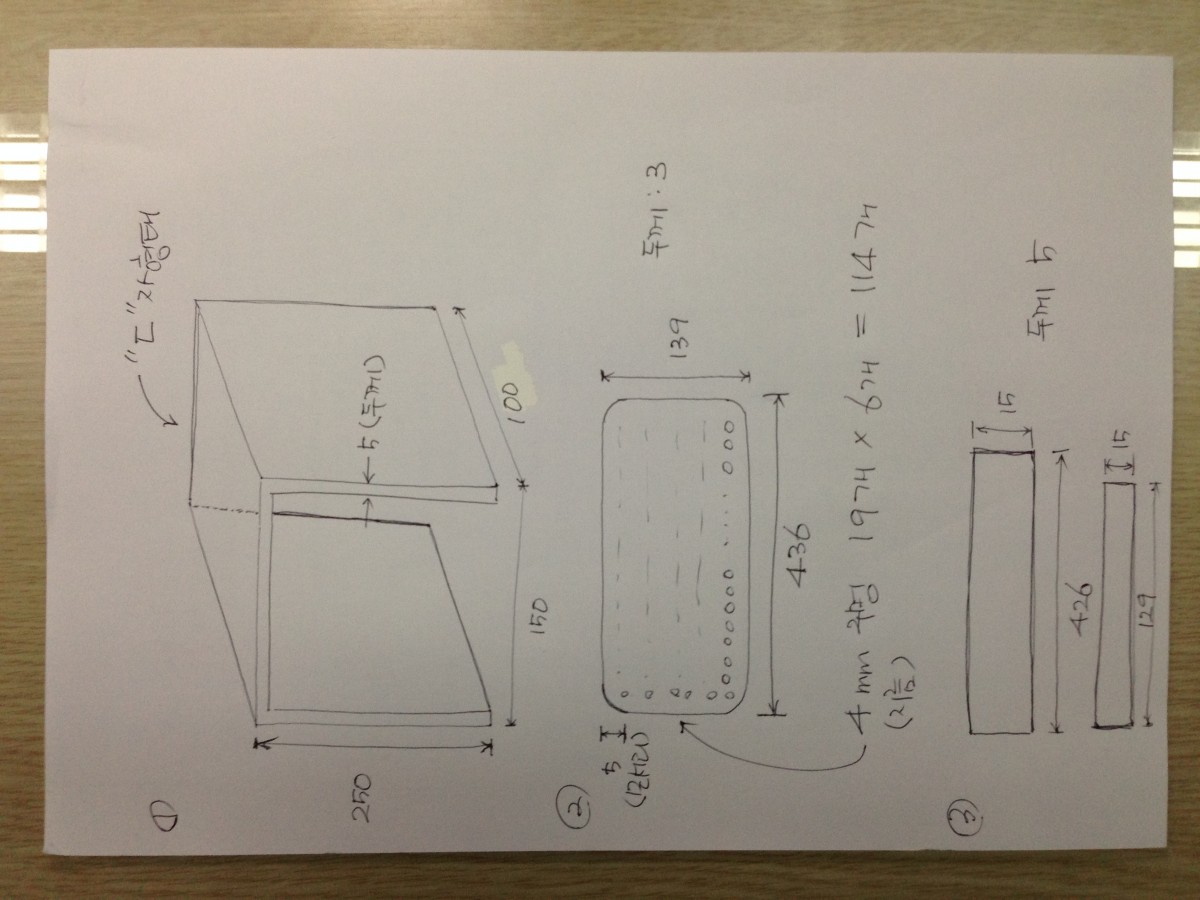 ①
"ㄷ"자형태
250
5 (두께)
100
150
②
5
(간격)
139
두께 : 3
436
4 mm 구멍 19개 × 6개 = 114개
(지름)
③
15
두께 5
426
15
129